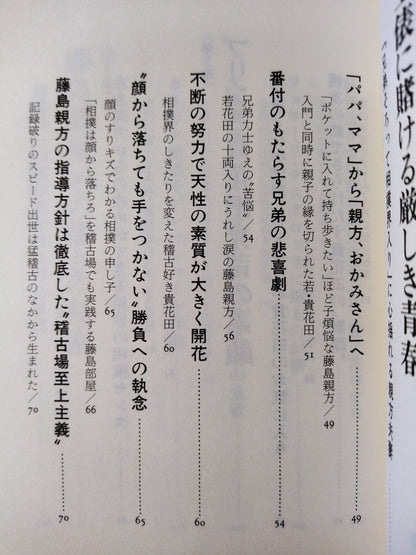 俵に賭ける厳しき青春
「パパ、ママ」から「親方、おかみさん」へ…………49
「ポケットに入れて持ち歩きたい」ほど子煩悩な藤島親方／49
入門と同時に親子の縁を切られた若・貴花田／51
番付のもたらす兄弟の悲喜劇…………54
兄弟力士ゆえの“苦悩”／54
若花田の十両入りにうれし涙の藤島親方／56
不断の努力で天性の素質が大きく開花…………60
相撲界のしきたりを変えた稽古好き貴花田／60
“顔から落ちても手をつかない”勝負への執念…………65
顔のすりキズでわかる相撲の申し子／65
「相撲は顔から落ちろ」を稽古場でも実践する藤島部屋／66
藤島親方の指導方針は徹底した“稽古場至上主義”…………70
記録破りのスピード出世は猛稽古のなかから生まれた／70